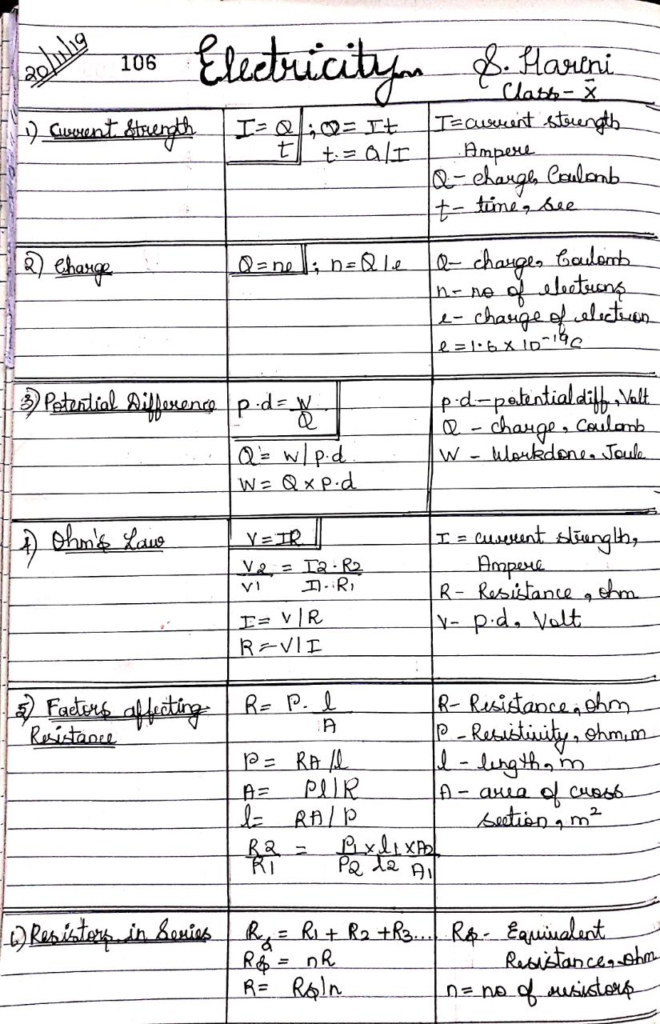 20/11/19
106
Electricity
S. Hareni
Class - X
1) Current Strength
I = Q/t ; Q = It
t = Q/I
I = current strength
Ampere
Q - charge, Coulomb
t - time, sec
2) Charge
Q = ne ; n = Q/e
Q - charge, Coulomb
n - no of electrons
e - charge of electron
e = 1.6 x 10⁻¹⁹C
3) Potential Difference
p.d = W/Q
Q = W/p.d
W = Q x p.d
p.d - potential diff, Volt
Q - charge, Coulomb
W - Workdone, Joule
4) Ohm's Law
V = IR
V2/V1 = I2.R2/I1.R1
I = V/R
R = V/I
I = current strength,
Ampere
R - Resistance, ohm
V - p.d, Volt
5) Factors affecting
Resistance
R = P.l/A
P = RA/l
A = Pl/R
l = RA/P
R2/R1 = P1 x l1 x A2/P2 l2 A1
R - Resistance, ohm
P - Resistivity, ohm.m
l - length, m
A - area of cross
section, m²
6) Resistors in Series
Rs = R1 + R2 + R3...
Rs = nR
R = Rs/n
Rs - Equivalent
Resistance, ohm
n = no of resistors